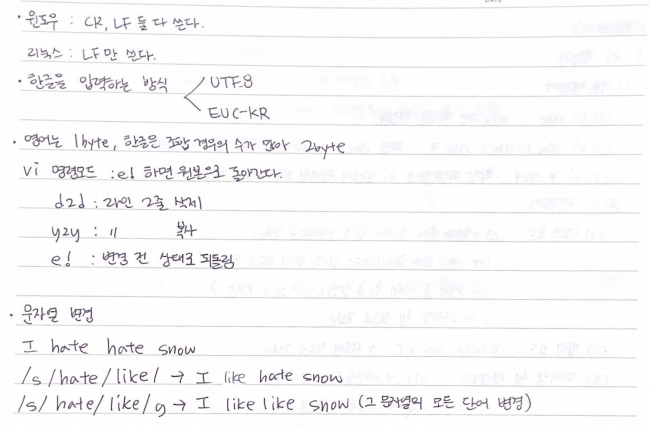 · 윈도우 : CR, LF 둘 다 쓴다.
리눅스 : LF만 쓴다.
· 한글을 입력하는 방식 UTF.8
EUC-KR
· 영어는 1byte, 한글은 조합 경우의 수가 많아 2byte
vi 명령모드 :e! 하면 원본으로 돌아간다.
d2d : 라인 2줄 삭제
y2y : 〃 복사
e! : 변경 전 상태로 되돌림
· 문자열 변경
I hate hate snow
/s/hate/like/ → I like hate snow
/s/hate/like/g → I like like snow (그 문자열의 모든 단어 변경)